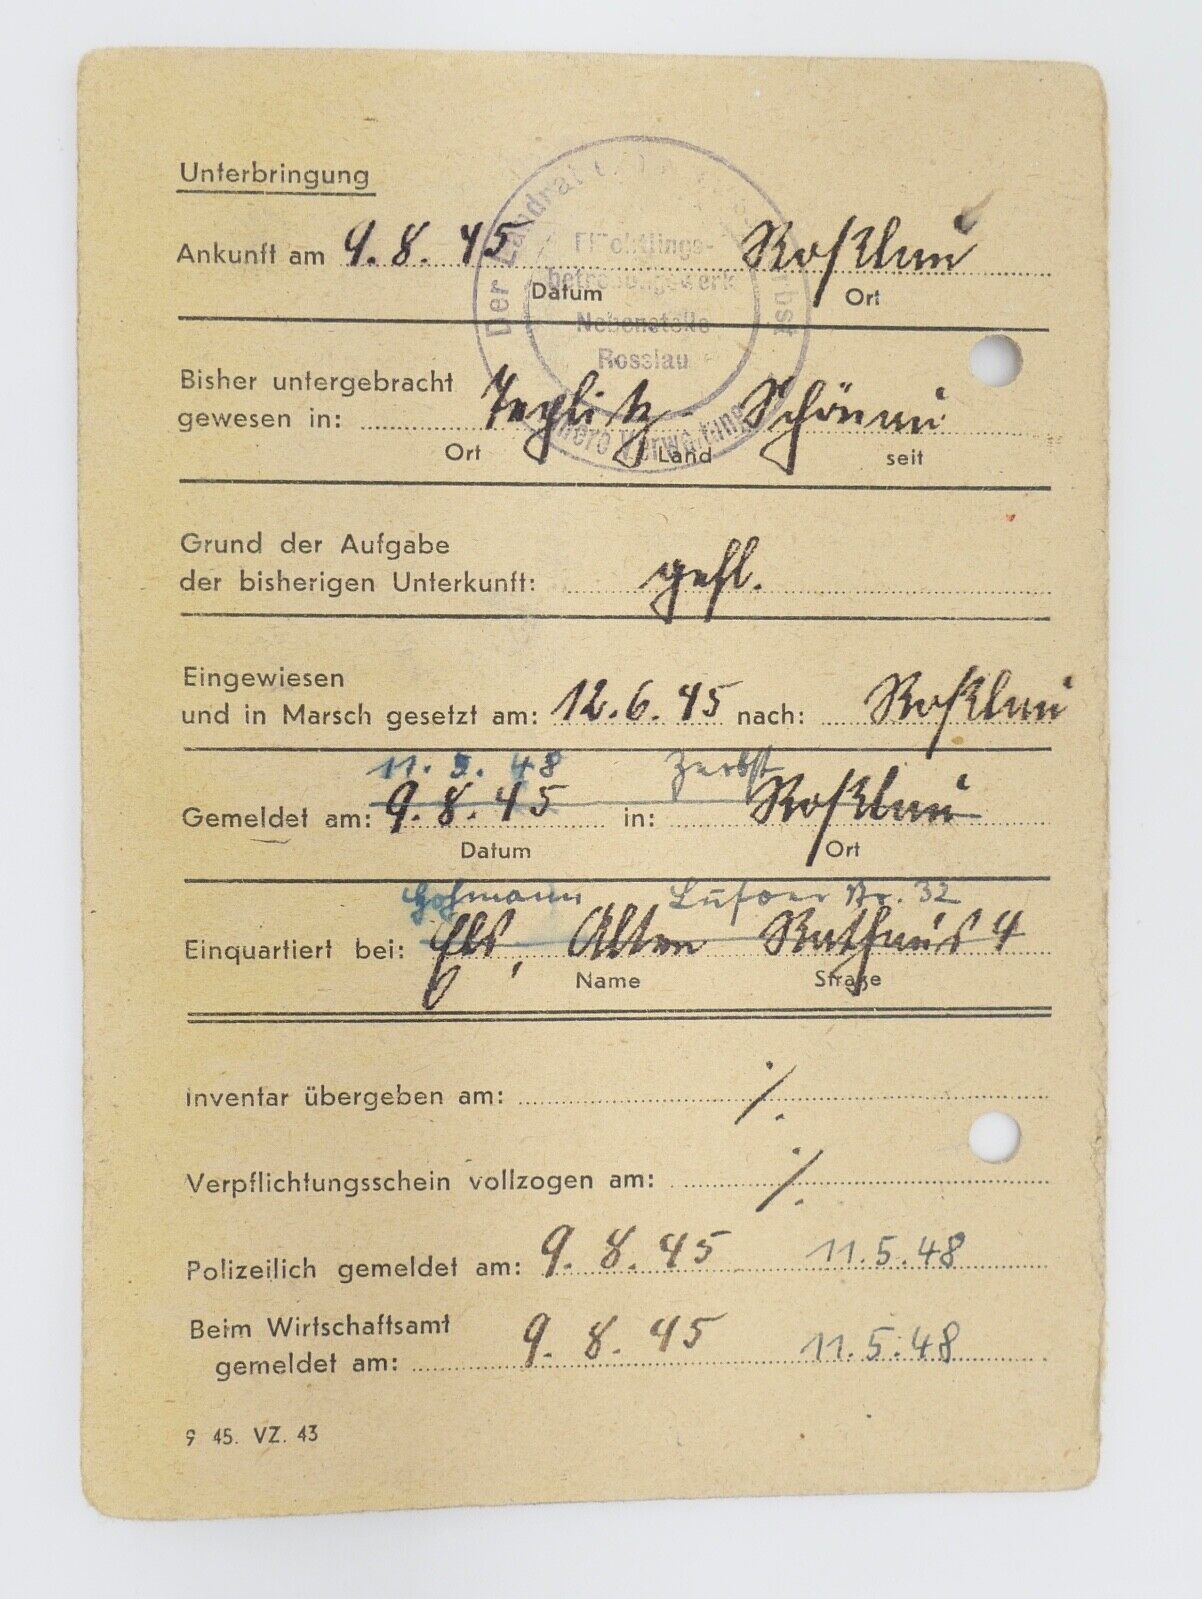 Unterbringung
Der Landrat
Flüchtlings-
betreuungswerk
Nebenstelle
Rosslau
Innere Verwaltung
Ankunft am 9.8.45 Roßlau
Datum Ort
Bisher untergebracht
gewesen in: Teplitz-Schönau
Ort Land seit
Grund der Aufgabe
der bisherigen Unterkunft: gefl.
Eingewiesen
und in Marsch gesetzt am: 12.6.45 nach: Roßlau
11.5.48 Zerbst
Gemeldet am: 9.8.45 in: Roßlau
Datum Ort
Hofmann Str. 32
Einquartiert bei: Alten Rathaus 4
Name Straße
Inventar übergeben am: ·/.
Verpflichtungsschein vollzogen am: ·/.
Polizeilich gemeldet am: 9.8.45 11.5.48
Beim Wirtschaftsamt
gemeldet am: 9.8.45 11.5.48
9 45. VZ. 43